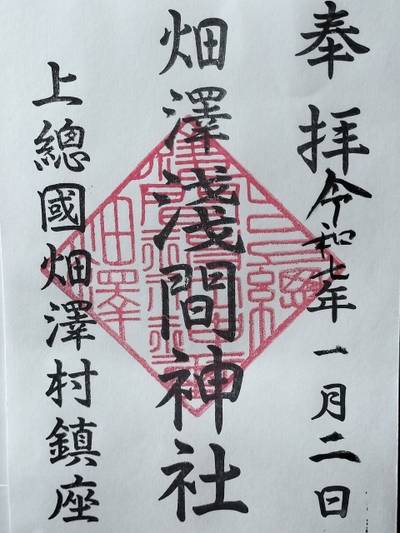 奉拝
令和七年一月二日
畑澤淺間神社
上總國畑澤村鎮座